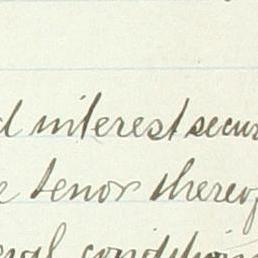 d interest secur
e tenor thereof
eral conditions